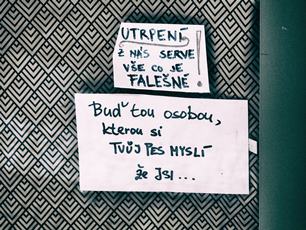 UTRPENÍ
Z NÁS SERVE
VŠE CO JE
FALEŠNÉ!
Buď tou osobou,
kterou si
TVŮJ PES MYSLÍ
že JSI...